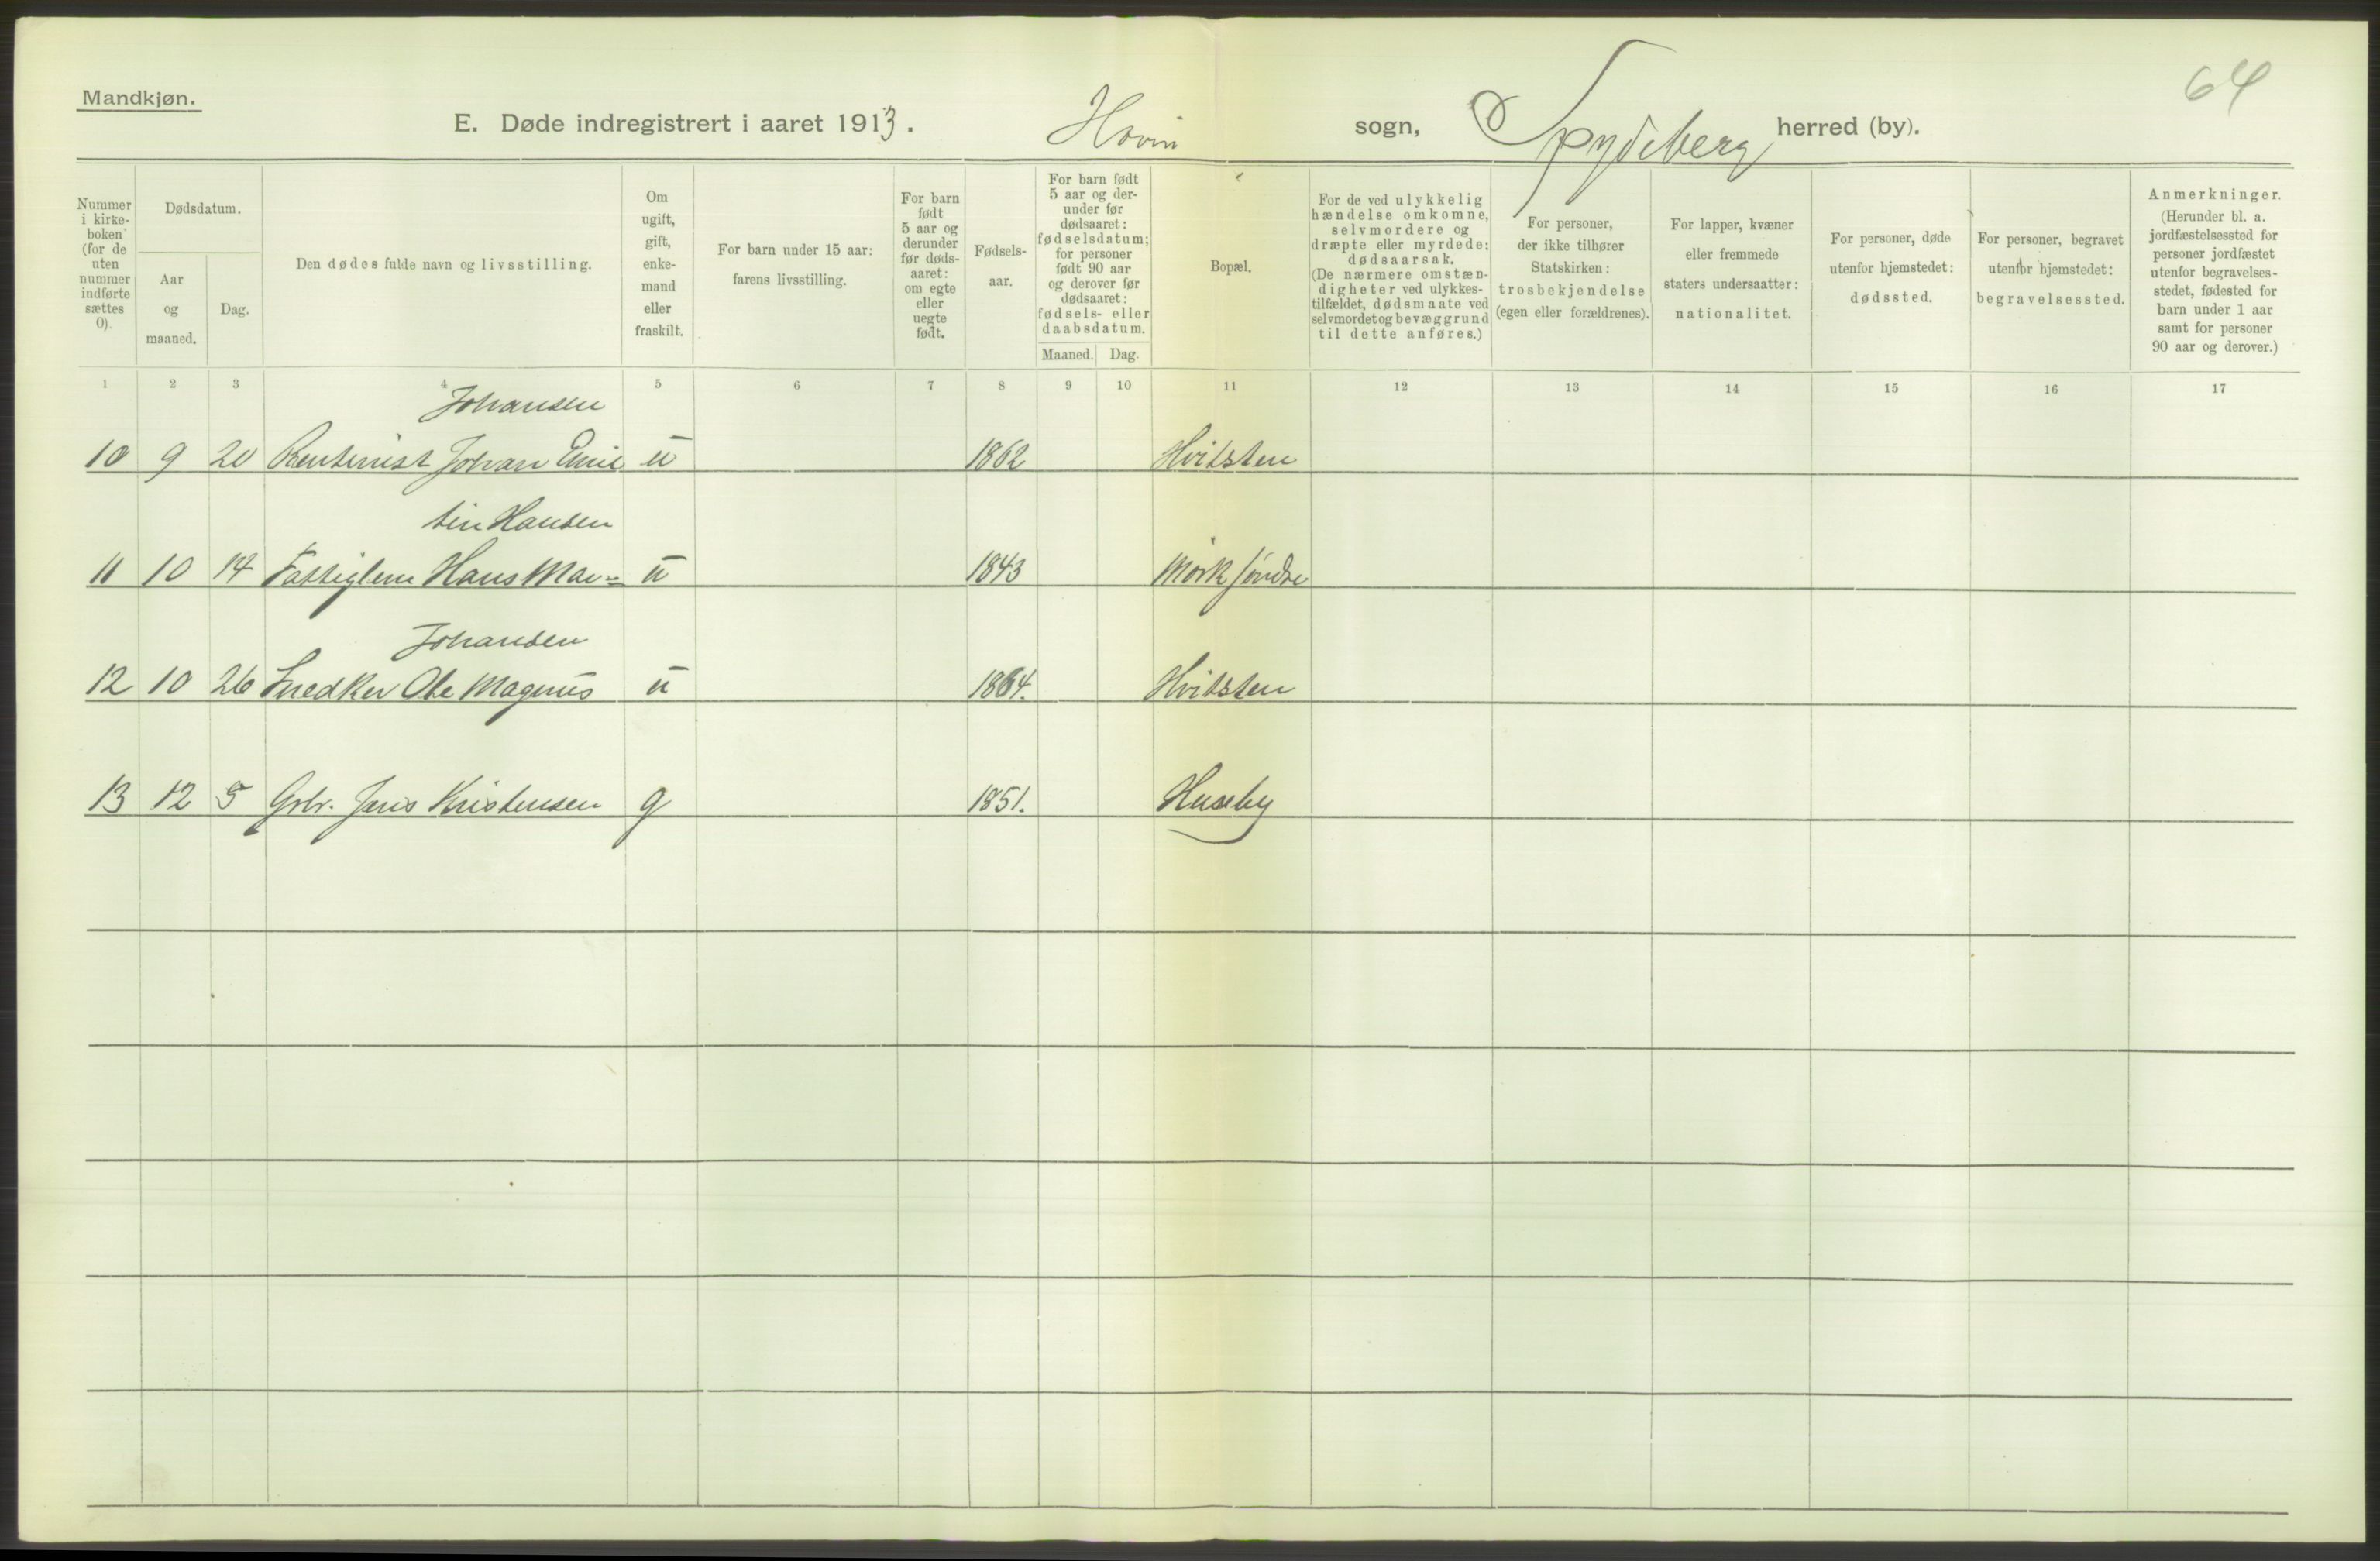 64
Mandkjøn.
E. Døde indregistrert i aaret 1913. Hovin sogn, Spydeberg herred (by).
Nummer i kirke-boken (for de uten nummer indførte sættes 0).
Dødsdatum.
Aar og maaned.
Dag.
Den dødes fulde navn og livsstilling.
Om ugift, gift, enke-mand eller fraskilt.
For barn under 15 aar: farens livsstilling.
For barn født 5 aar og derunder før døds-aaret: om egte eller uegte født.
Fødsels-aar.
For barn født 5 aar og der-under før dødsaaret: fødselsdatum; for personer født 90 aar og derover før dødsaaret: fødsels- eller daabsdatum.
Maaned. Dag.
Bopæl.
For de ved ulykkelig hændelse omkomne, selvmordere og dræpte eller myrdede: dødsaarsak. (De nærmere omstæn-digheter ved ulykkes-tilfældet, dødsmaate ved selvmordet og bevæggrund til dette anføres.)
For personer, der ikke tilhører Statskirken: trosbekjendelse (egen eller forældrenes).
For lapper, kvæner eller fremmede staters undersaatter: nationalitet.
For personer, døde utenfor hjemstedet: dødssted.
For personer, begravet utenfor hjemstedet: begravelsessted.
Anmerkninger. (Herunder bl. a. jordfæstelsessted for personer jordfæstet utenfor begravelses-stedet, fødested for barn under 1 aar samt for personer 90 aar og derover.)
1 2 3 4 5 6 7 8 9 10 11 12 13 14 15 16 17
Johansen
10 9 20 Rentenist Johan Emil u 1862 Hvitsten
tin Hansen
11 10 14 Fattiglem Hans Mar= u 1843 Mørk søndre
Johansen
12 10 26 Snedker Ole Magnus u 1864. Hvitsten
13 12 5 Grbr. Jens Kristensen g 1851. Huseby